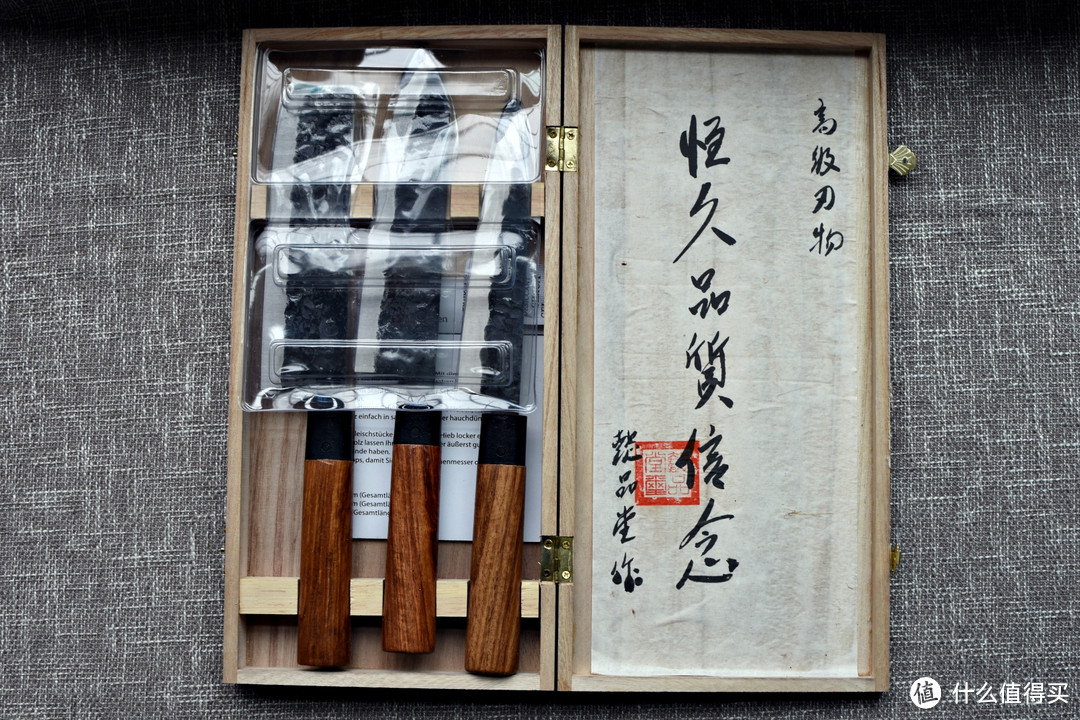 高級刃物
恒久品質信念
品堂作
einfach in s
er hauchdün
leischstücke
Hieb locker e
olz lassen Ih
er äußerst gu
nde haben.
aps, damit Si
nenmesser d
m (Gesamtlä
m (Gesamtlä
(Gesamtlän
值 什么值得买